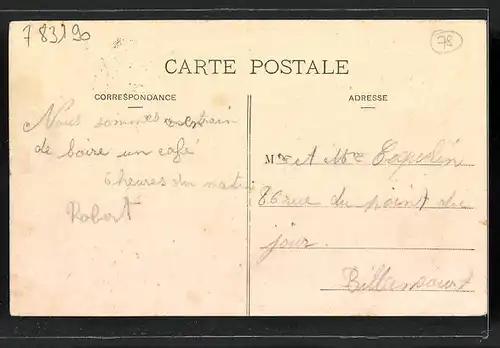 78390
78
CARTE POSTALE
CORRESPONDANCE
ADRESSE
Nous sommes entrain
de boire un café
6 heures du matin
Robert
Mr et Mme
86 rue du point du
jour.
Billancourt